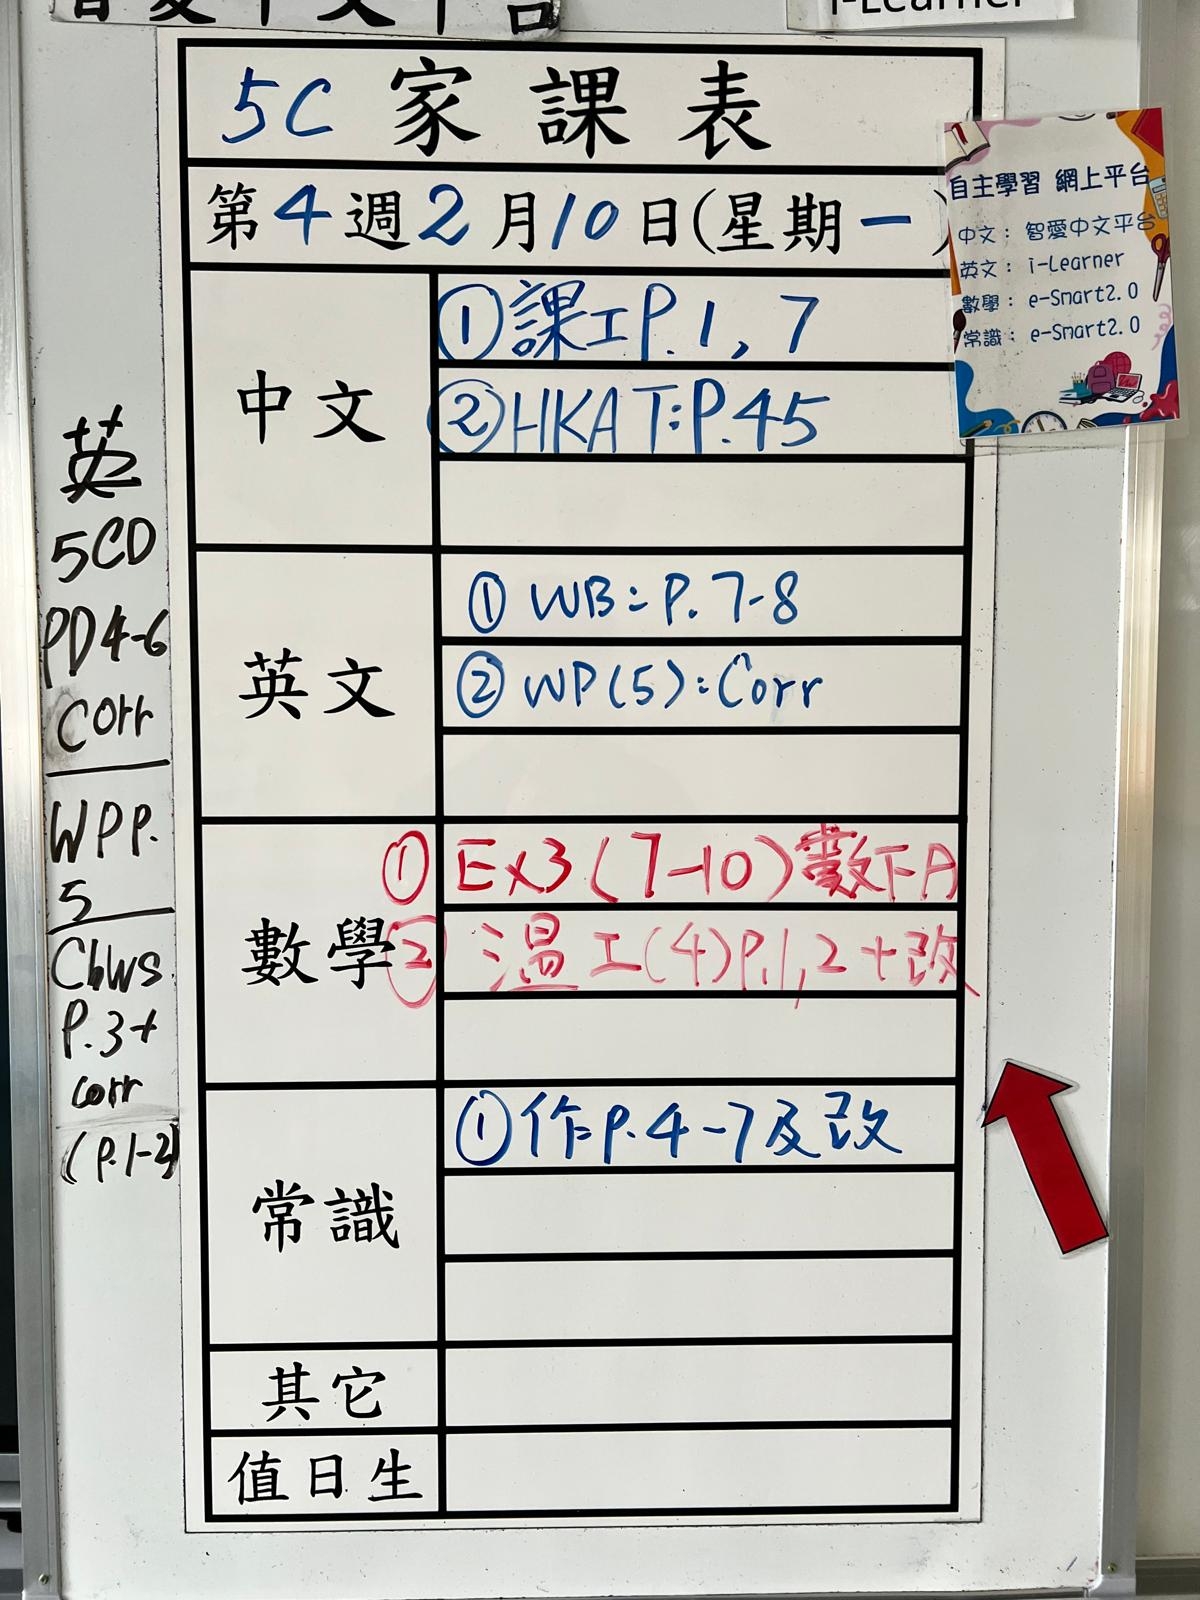 i-Learner
5C 家課表
第4週2月10日(星期一)
中文
①課工P.1, 7
②HKAT:P.45
英文
① WB:P.7-8
② WP(5):Corr
數學
① Ex3(7-10)數下A
② 溫工(4)P.1,2+改
常識
①作:P.4-7及改
其它
值日生
自主學習 網上平台
中文: 智愛中文平台
英文: i-Learner
數學: e-Smart2.0
常識: e-Smart2.0
英
5CD
PD4-6
Corr
WP P.
5
CbWs
P.3+
corr
(P.1-2)